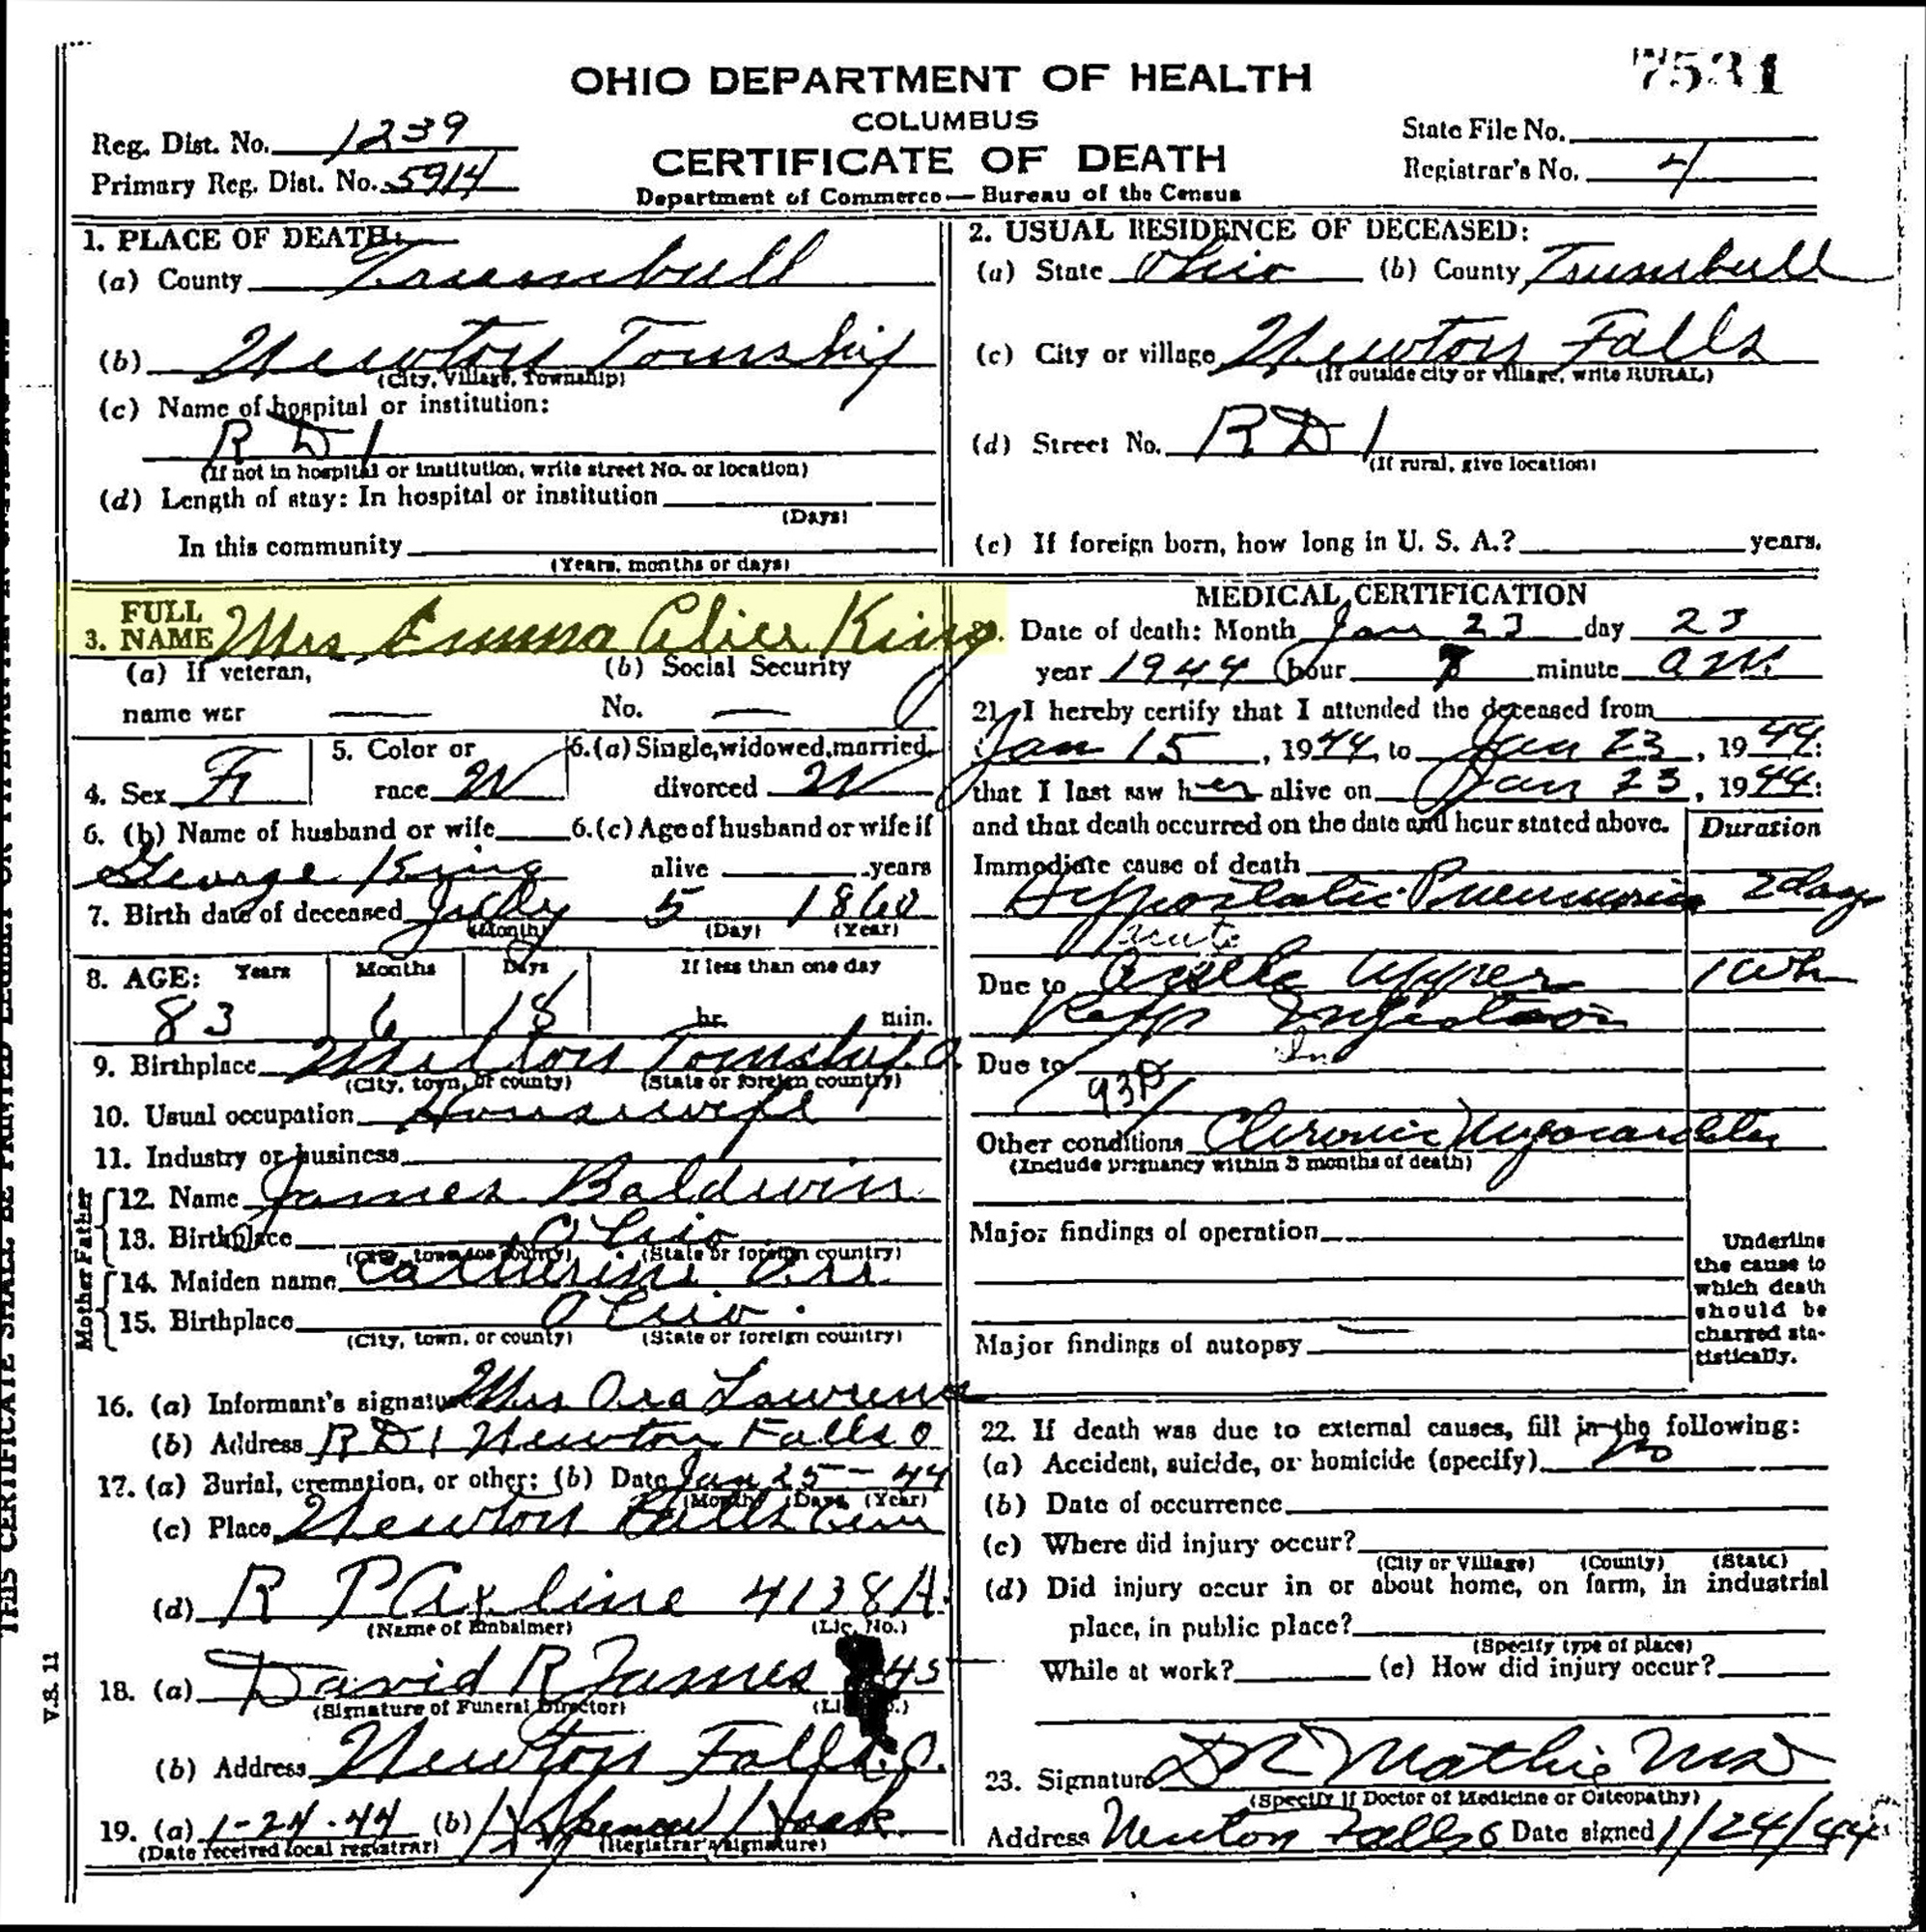 7531
OHIO DEPARTMENT OF HEALTH
COLUMBUS
CERTIFICATE OF DEATH
Department of Commerce — Bureau of the Census
Reg. Dist. No. 1239
Primary Reg. Dist. No. 5914
State File No.
Registrar's No. 4
1. PLACE OF DEATH:
(a) County Trumbull
(b) Newton Township
(City, Village, Township)
(c) Name of hospital or institution:
R D 1
(If not in hospital or institution, write street No. or location)
(d) Length of stay: In hospital or institution
(Days)
In this community
(Years, months or days)
2. USUAL RESIDENCE OF DECEASED:
(a) State Ohio (b) County Trumbull
(c) City or village Newton Falls
(If outside city or village, write RURAL)
(d) Street No. R D 1
(If rural, give location)
(e) If foreign born, how long in U. S. A.? years.
3. FULL NAME Mrs. Emma Alice King
(a) If veteran, name war —
(b) Social Security No. —
4. Sex F
5. Color or race W
6. (a) Single, widowed, married, divorced W
6. (b) Name of husband or wife
George King
6. (c) Age of husband or wife if alive years
7. Birth date of deceased July 5 1860
(Month) (Day) (Year)
8. AGE: Years Months Days If less than one day
83 6 18 hr. min.
9. Birthplace Milton Township O.
(City, town, or county) (State or foreign country)
10. Usual occupation Housewife
11. Industry or business
Father
12. Name James Baldwin
13. Birthplace Ohio
(City, town, or county) (State or foreign country)
Mother
14. Maiden name Catherine Orr
15. Birthplace Ohio.
(City, town, or county) (State or foreign country)
16. (a) Informant's signature Mrs Ora Lawrence
(b) Address RD 1 Newton Falls O
17. (a) Burial, cremation, or other; (b) Date Jan 25 - 44
(Month) (Day) (Year)
(c) Place Newton Falls Cem
(d) R P Axline 4138A
(Name of Embalmer) (Lic. No.)
18. (a) David R James 45
(Signature of Funeral Director)
(b) Address Newton Falls. O.
19. (a) 1-24-44 (b) Hoak
(Date received local registrar) (Registrar's signature)
V.S. 11
THIS CERTIFICATE SHALL BE PRINTED LEGIBLY OR TYPEWRITTEN IN
MEDICAL CERTIFICATION
Date of death: Month Jan 23 day 23
year 1944 hour 7 minute am
21. I hereby certify that I attended the deceased from
Jan 15, 1944, to Jan 23, 1944:
that I last saw her alive on Jan 23, 1944:
and that death occurred on the date and hour stated above.
Duration
Immediate cause of death
Hypostatic Pneumonia 2 days
acute
Due to Upper 1 Wk
Resp
Due to
93D
Other conditions Chronic Myocarditis
(Include pregnancy within 3 months of death)
Major findings of operation
Major findings of autopsy —
Underline the cause to which death should be charged statistically.
22. If death was due to external causes, fill in the following:
(a) Accident, suicide, or homicide (specify) no
(b) Date of occurrence
(c) Where did injury occur?
(City or Village) (County) (State)
(d) Did injury occur in or about home, on farm, in industrial
place, in public place?
(Specify type of place)
While at work? (e) How did injury occur?
23. Signature DR Mathie MD
(Specify if Doctor of Medicine or Osteopathy)
Address Newton Falls O Date signed 1/24/44